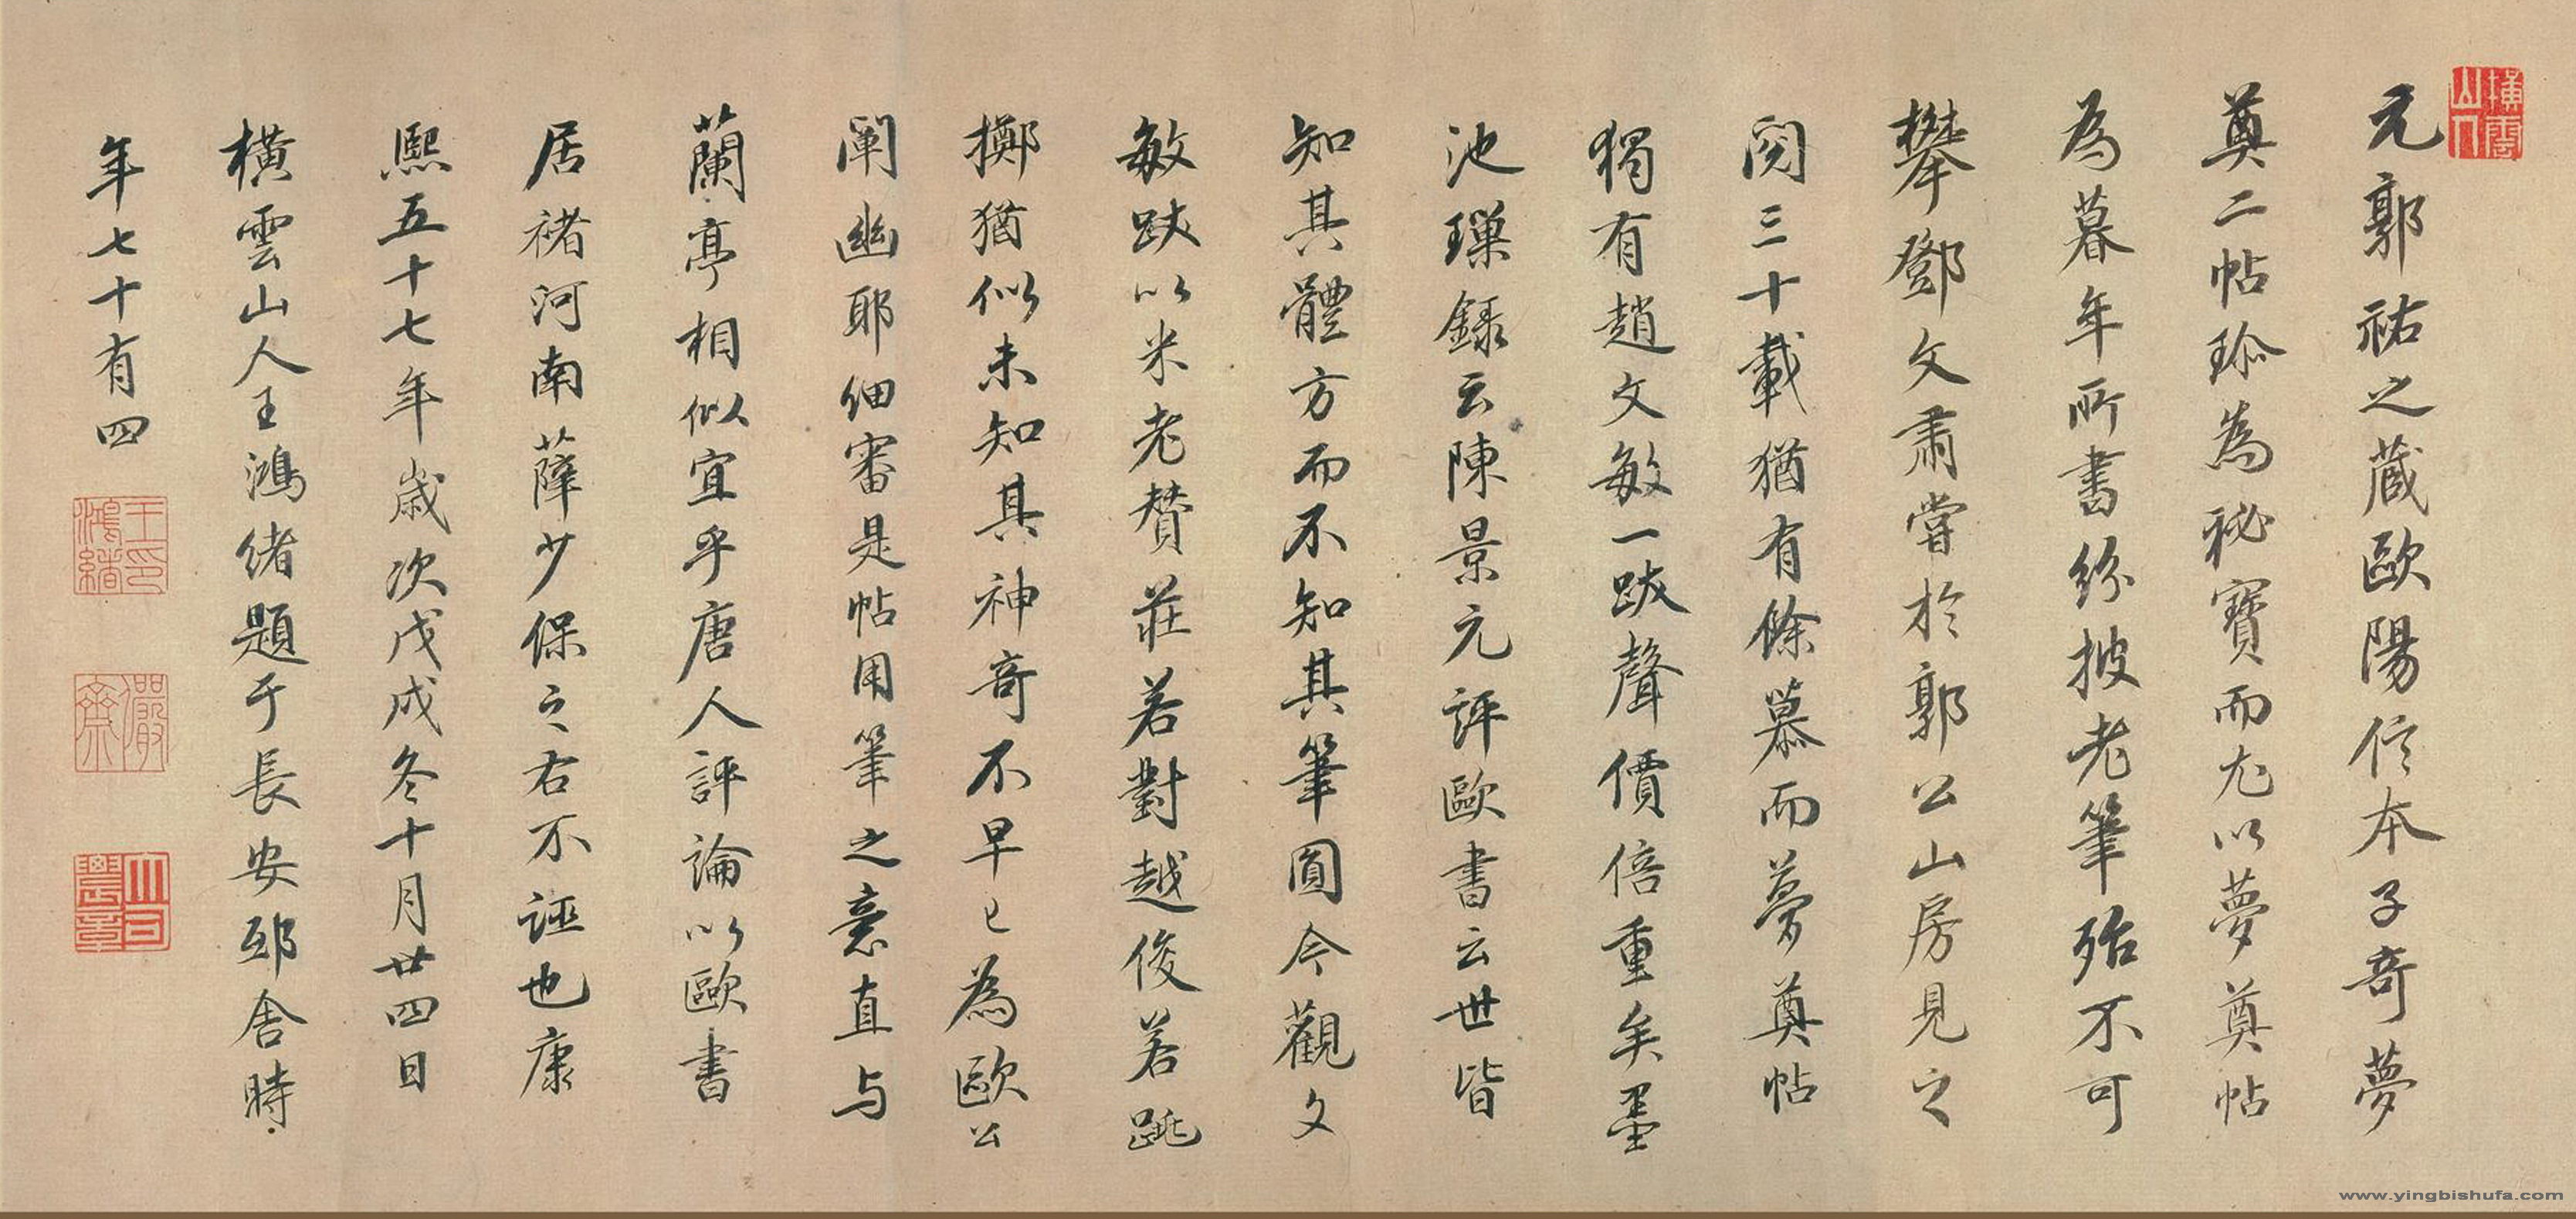 元郭祐之蔵歐陽信本子奇夢
奠二帖珎為秘寶而尤以夢奠帖
為暮年所書紛披老筆殆不可
攀鄧文肅嘗於郭公山房見之
閱三十載猶有餘慕而夢奠帖
獨有趙文敏一跋聲價倍重矣墨
池璅錄云陳景元評歐書云世皆
知其體方而不知其筆圓今觀文
敏跋以米老贊莊若對越俊若跳
擲猶似未知其神奇不早已為歐公
闡幽耶細審是帖用筆之意直与
蘭亭相似宜乎唐人評論以歐書
居褚河南薛少保之右不誣也康
熙五十七年歲次戊戌冬十月廿四日
橫雲山人王鴻緒題于長安邸舍時
年七十有四
橫雲山人
王鴻緒印
儼齋
大司農章
www.yingbishufa.com